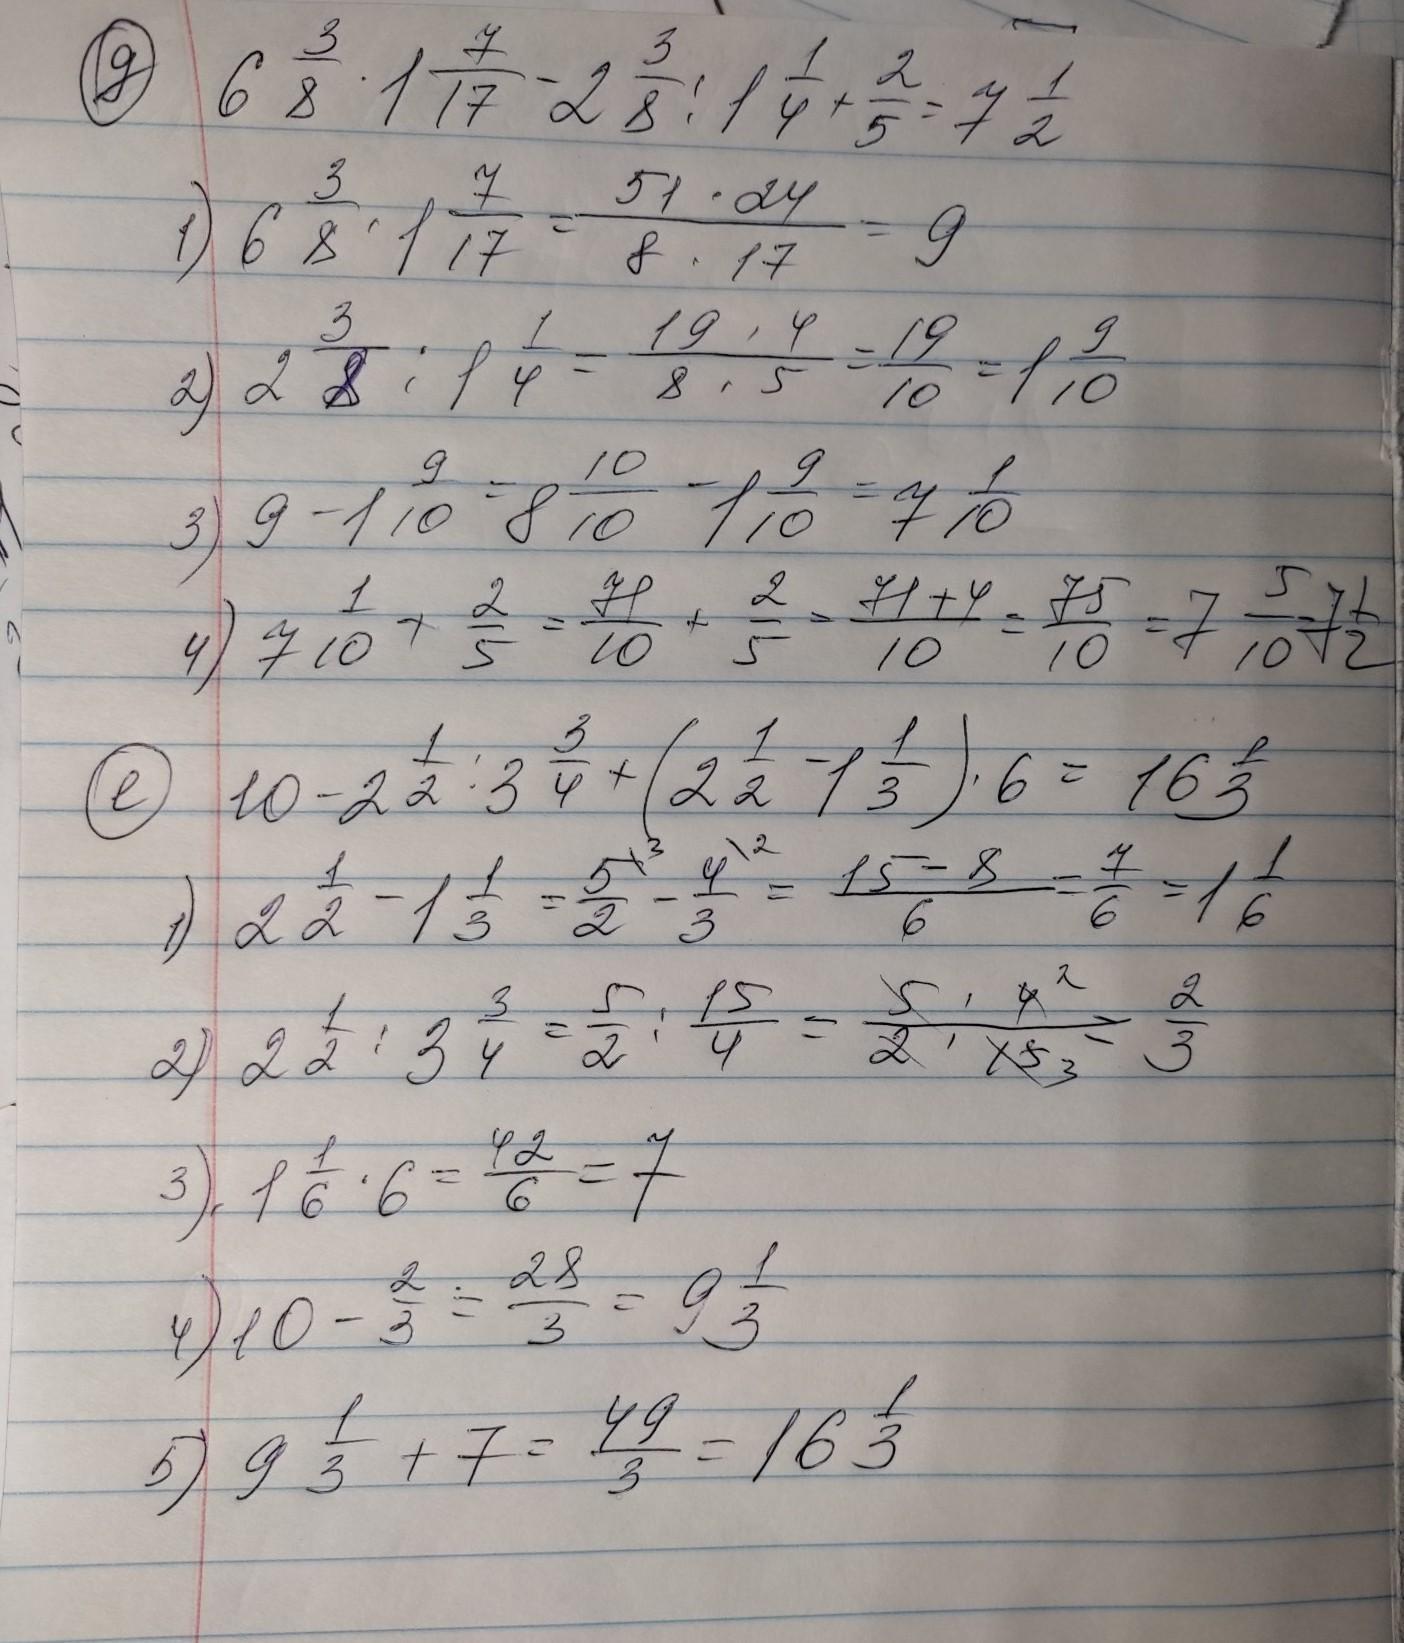 д) 6 3/8 · 1 7/17 - 2 3/8 : 1 1/4 + 2/5 = 7 1/2
1) 6 3/8 · 1 7/17 = 51 · 24 / 8 · 17 = 9
2) 2 3/8 : 1 1/4 = 19 · 4 / 8 · 5 = 19/10 = 1 9/10
3) 9 - 1 9/10 = 8 10/10 - 1 9/10 = 7 1/10
4) 7 1/10 + 2/5 = 71/10 + 2/5 = 71+4/10 = 75/10 = 7 5/10 = 7 1/2
е) 10 - 2 1/2 : 3 3/4 + (2 1/2 - 1 1/3) · 6 = 16 1/3
1) 2 1/2 - 1 1/3 = 5\3/2 - 4\2/3 = 15 - 8/6 = 7/6 = 1 1/6
2) 2 1/2 : 3 3/4 = 5/2 : 15/4 = 5 · 4 2 / 2 · 15 3 = 2/3
3). 1 1/6 · 6 = 42/6 = 7
4) 10 - 2/3 = 28/3 = 9 1/3
5) 9 1/3 + 7 = 49/3 = 16 1/3